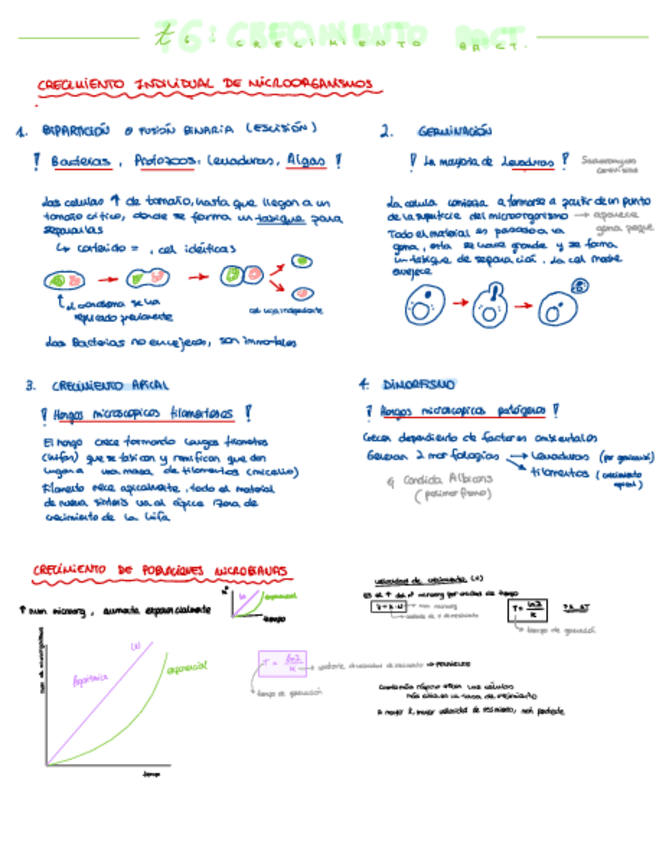 t6: CRECIMIENTO BACT.
CRECIMIENTO INDIVIDUAL DE MICROORGANISMOS
1. BIPARTICIÓN o FUSIÓN BINARIA (ESCISIÓN)
! Bacterias, Protozoos, Levaduras, Algas !
Las celulas ↑ de tamaño, hasta que llegan a un
tamaño crítico, donde se forma un tabique para
separarlas
↳ contenido = , cel idénticas
el cromosoma se va
replicado previamente
cel hija independiente
Las Bacterias no envejecen, son inmortales
2. GERMINACIÓN
! La mayoria de Levaduras !
Saccharomyces
cerevisiae
La celula comienza a formarse a partir de un punto
de la superficie del microorganismo → aparece
gema peque
Todo el material es pasado a la
gema, esta se hace grande y se forma
un tabique de separación. La cel madre
envejece
3. CRECIMIENTO APICAL
! Hongos microscopicos filamentosos !
El hongo crece formando largos filamentos
(hifas) que se tabican y ramifican que dan
lugar a una masa de filamentos (micelio)
Filamento crece apicalmente, todo el material
de nueva síntesis va al ápice zona de
crecimiento de la hifa
4. DIMORFISMO
! Hongos microscopicos patógenos !
Crecen dependiento de factores ambientales
Generan 2 morfologias → Levaduras (por gemación)
→ filamentos (crecimiento
apical)
↳ Candida Albicans
(polimorfismo)
CRECIMIENTO DE POBLACIONES MICROBIANAS
↑ num microorg, aumenta exponencialmente
exponencial
tiempo
velocidad de crecimiento (v)
Es el ↑ del nº microorg por unidad de tiempo
V = K·N → num microorg
T = ln2/K
tiempo de generación
num de microorganismos
logaritmica
exponencial
tiempo
T = ln2/K
tiempo de generación
A mayor K, mayor velocidad de crecimiento,